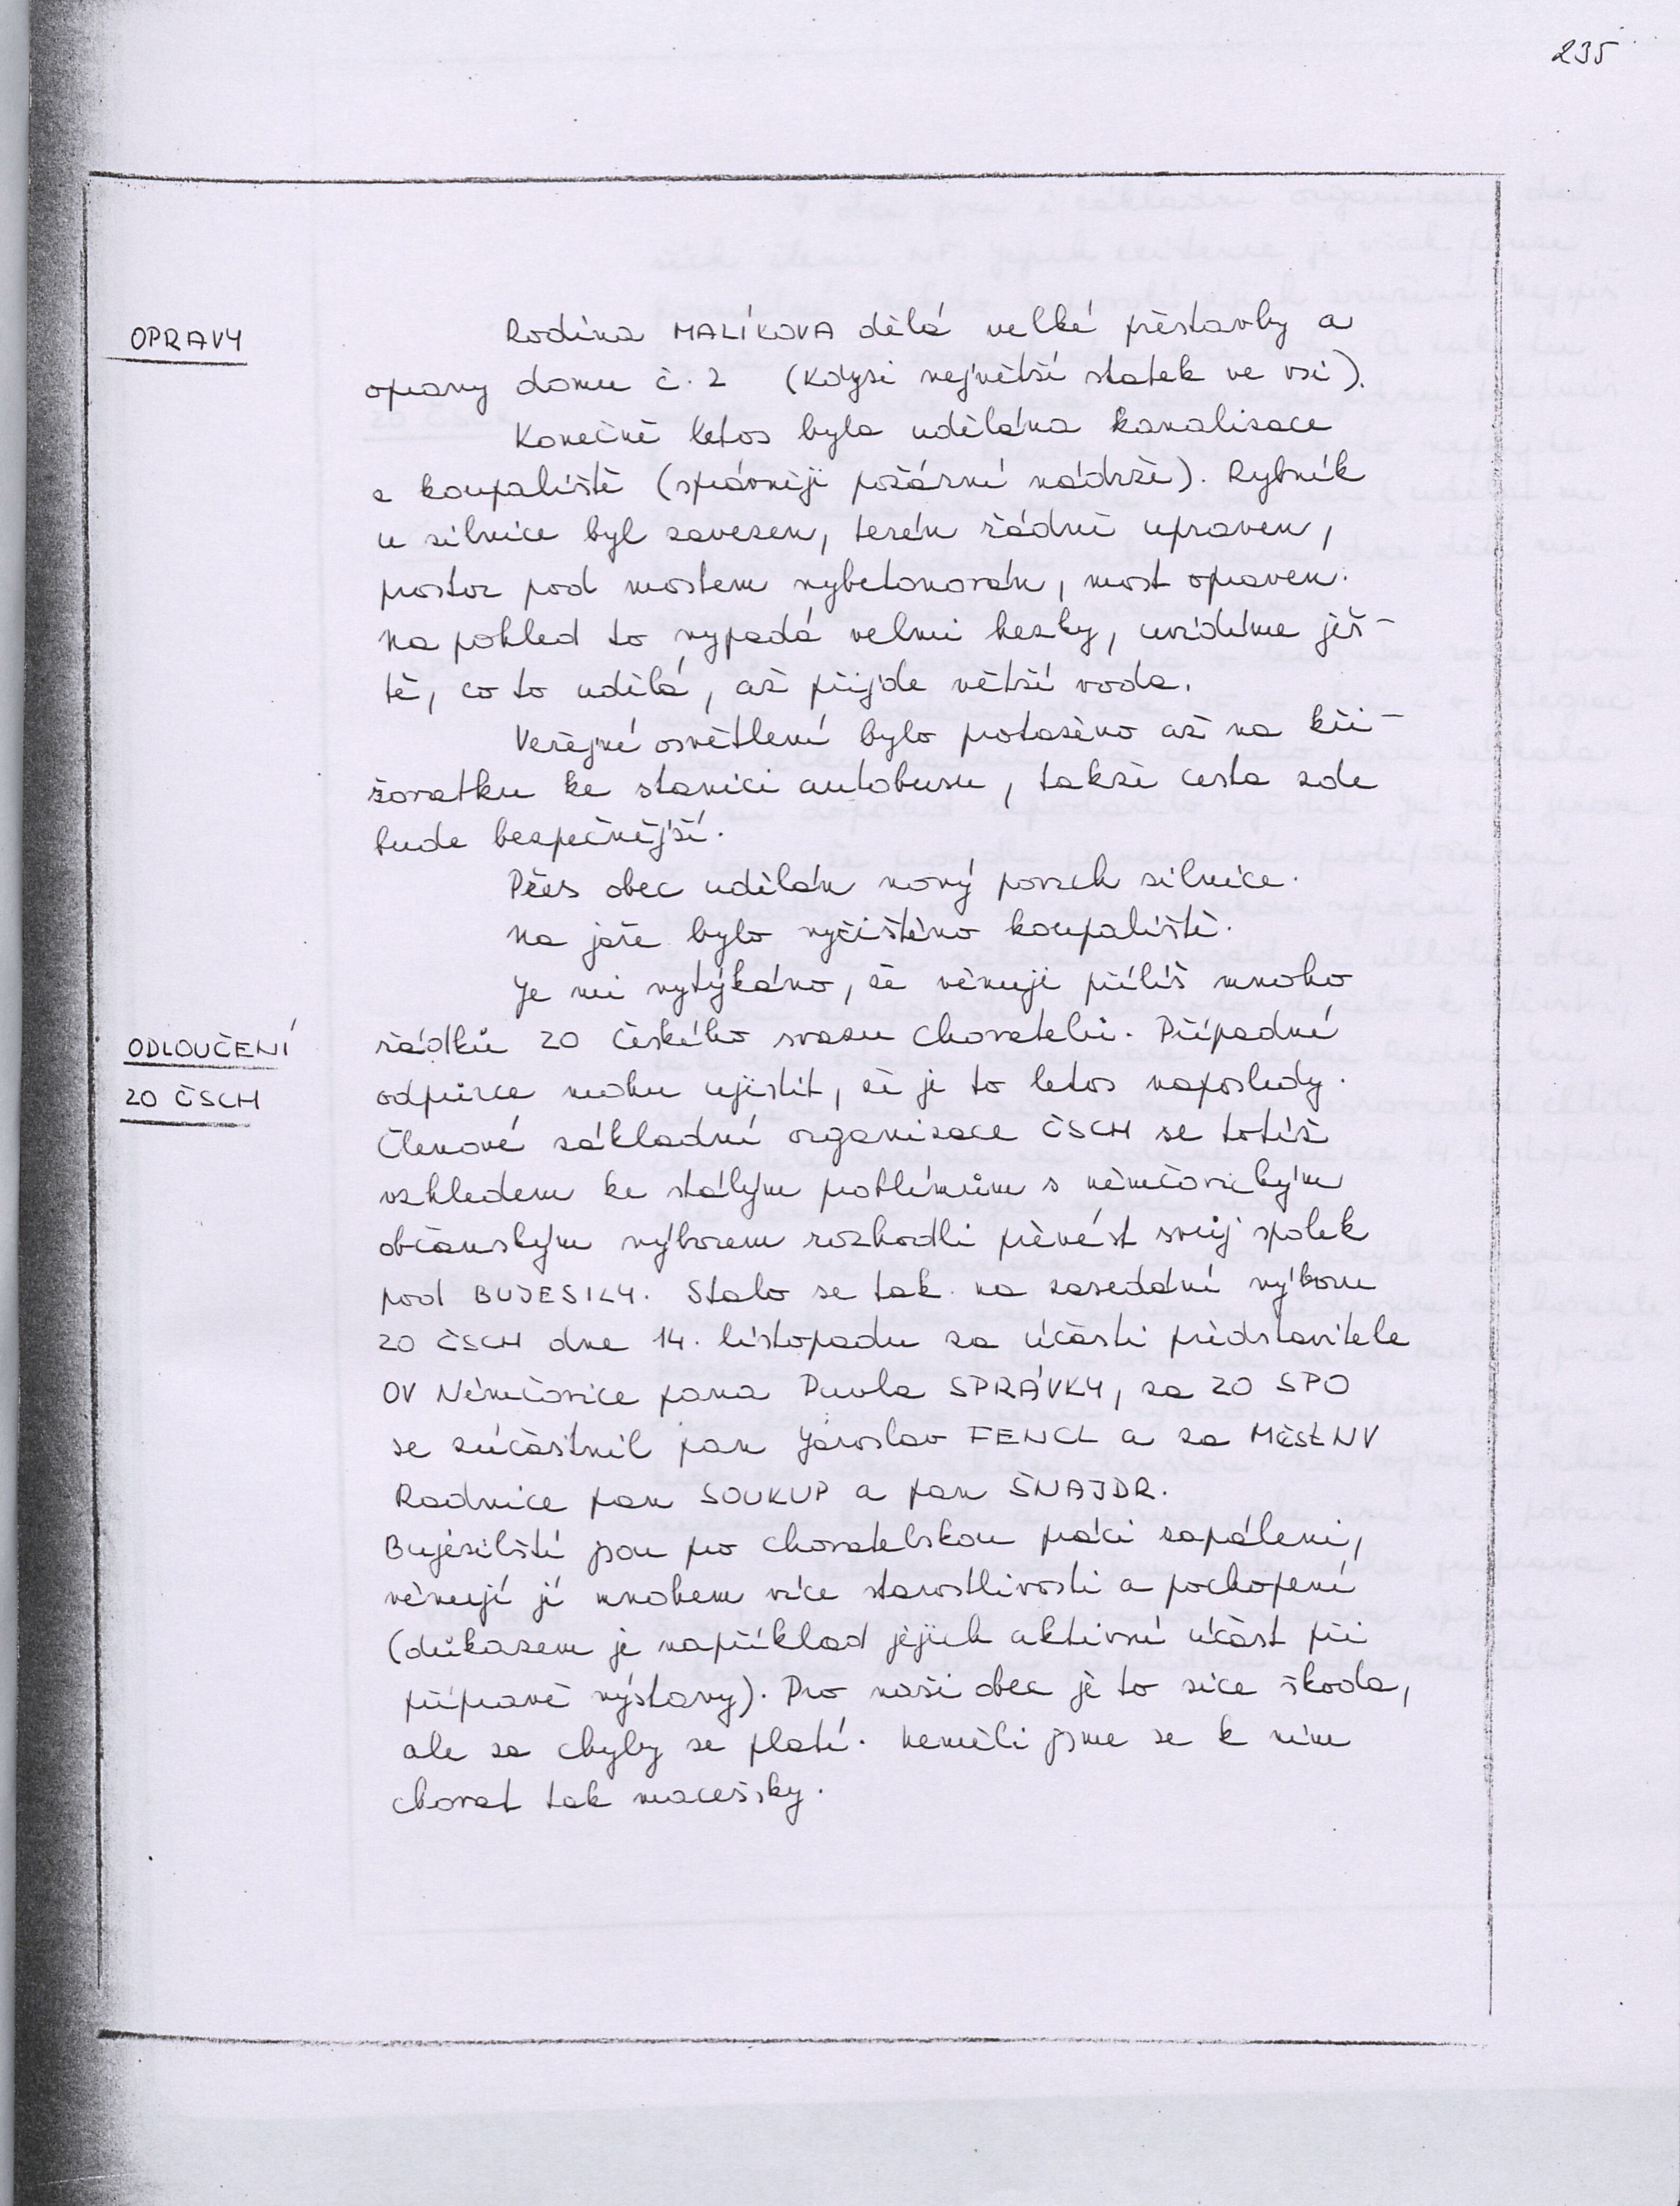 235
OPRAVY
Rodina MALÍKOVA dělá velké přestavby a
opravy domu č. 2 (Kdysi největší statek ve vsi).
Konečně letos byla udělána kanalizace
z koupaliště (správněji požární nádrže). Rybník
u silnice byl zavezen, terén řádně upraven,
prostor pod mostem vybetonován, most opraven.
Na pohled to vypadá velmi hezky, uvidíme ješ-
tě, co to udělá, až přijde větší voda.
Veřejné osvětlení bylo protaženo až na kři-
žovatku ke stanici autobusu, takže cesta zde
bude bezpečnější.
Přes obec udělán nový povrch silnice.
Na jaře bylo vyčištěno koupaliště.
Je mi vytýkáno, že věnuji příliš mnoho
ODLOUČENÍ
ZO ČSCH
řádků ZO Českého svazu chovatelů. Případné
odpůrce mohu ujistit, že je to letos naposledy.
Členové základní organizace ČSCH se totiž
vzhledem ke stálým problémům s němčovickým
občanským výborem rozhodli převést svůj spolek
pod BUJESILY. Stalo se tak na zasedání výboru
ZO ČSCH dne 14. listopadu za účasti představitele
OV Němčovice pana Pavla SPRÁVKY, za ZO SPO
se zúčastnil pan Jaroslav FENCL a za MěstNV
Radnice pan SOUKUP a pan ŠNAJDR.
Buješilští jsou pro chovatelskou práci zapáleni,
věnují jí mnohem více starostlivosti a pochopení
(důkazem je například jejich aktivní účast při
přípravě výstavy). Pro naši obec je to sice škoda,
ale za chyby se platí. Neměli jsme se k nim
chovat tak macešsky.